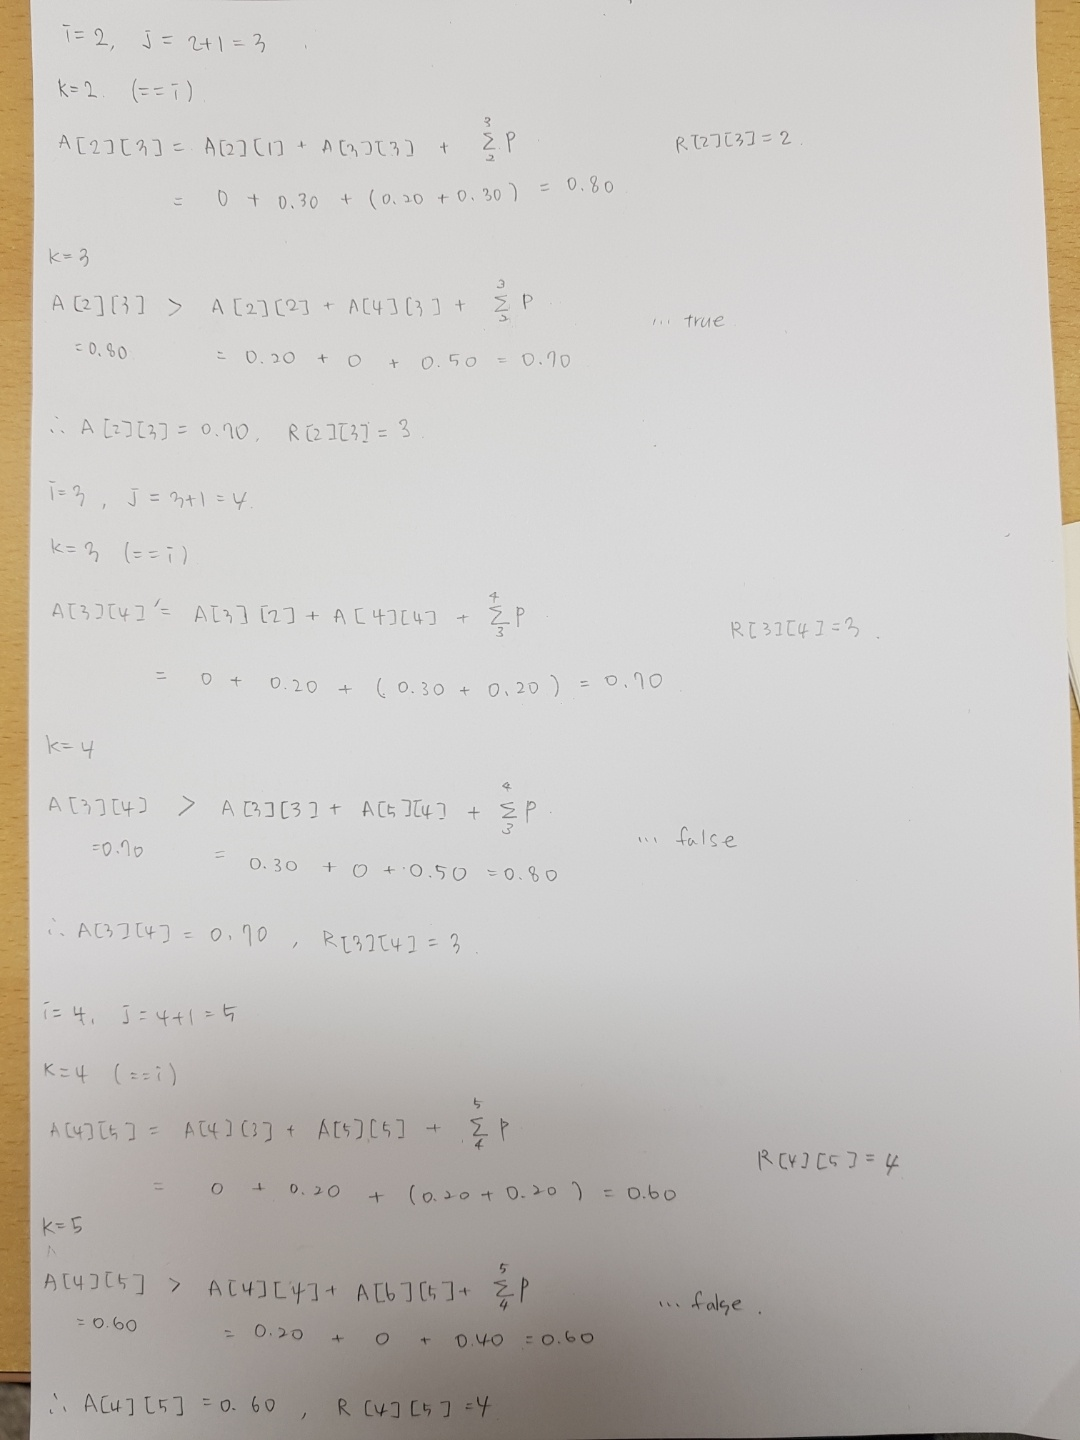 i=2, j = 2+1 = 3
k=2. (==i)
A[2][3] = A[2][1] + A[3][3] + 3 Σ 2 P R[2][3] = 2.
= 0 + 0.30 + (0.20 + 0.30) = 0.80
k=3
A[2][3] > A[2][2] + A[4][3] + 3 Σ 2 P ... true
=0.80 = 0.20 + 0 + 0.50 = 0.70
∴ A[2][3] = 0.70, R[2][3] = 3
i=3, j = 3+1 = 4.
k=3 (==i)
A[3][4] = A[3][2] + A[4][4] + 4 Σ 3 P R[3][4] = 3.
= 0 + 0.20 + (0.30 + 0.20) = 0.70
k=4
A[3][4] > A[3][3] + A[5][4] + 4 Σ 3 P ... false
=0.70 = 0.30 + 0 + 0.50 = 0.80
∴ A[3][4] = 0.70, R[3][4] = 3
i=4, j=4+1=5
k=4 (==i)
A[4][5] = A[4][3] + A[5][5] + 5 Σ 4 P R[4][5] = 4
= 0 + 0.20 + (0.20 + 0.20) = 0.60
k=5
A[4][5] > A[4][4] + A[6][5] + 5 Σ 4 P ... false.
=0.60 = 0.20 + 0 + 0.40 = 0.60
∴ A[4][5] = 0.60, R[4][5] = 4